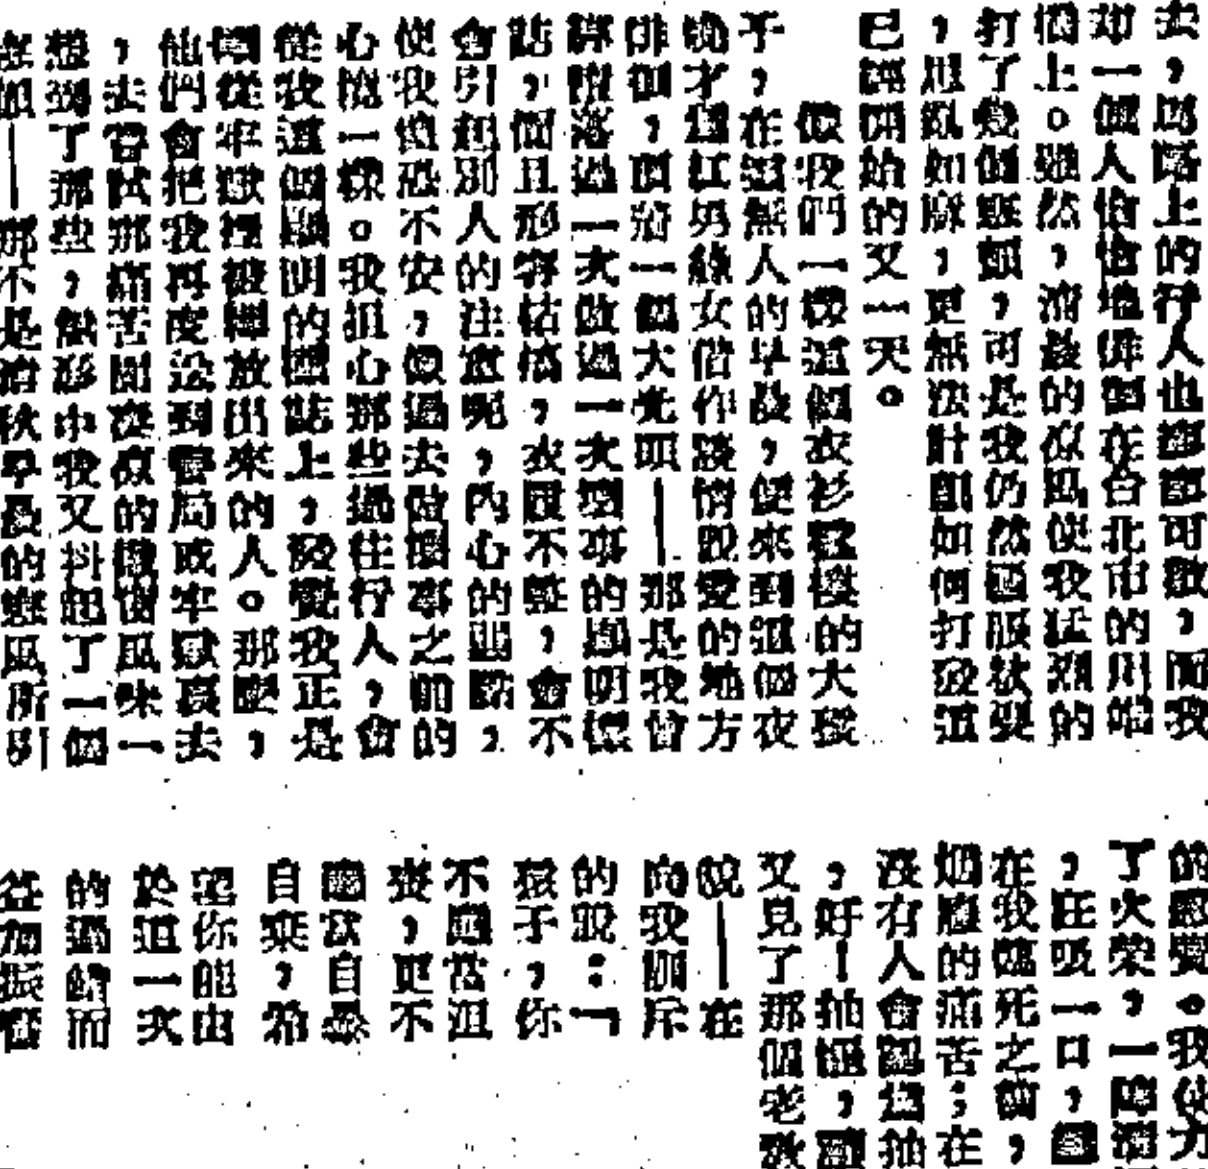 去，馬路上的行人也寥寥可數，而我
却一個人怕怕地徘徊在台北市的川端
橋上。雖然，清晨的涼風使我猛烈的
打了幾個寒顫，可是我仍然國服狀要
，思亂如麻，更無法計劃如何打發這
已經開始的又一天。
像我們一樣這個衣衫襤褸的大孩
子，在這無人的早晨，便來到這個夜
晚才為紅男綠女借作談情說愛的地方
徘徊，頂着一個大光頭——那是我曾
經墮落過一次做過一次壞事的鮮明標
誌，而且形容枯槁，衣履不整，會不
會引起別人的注意呢，內心的
使我惶恐不安，像過去做壞事之前的
心慌一樣。我担心那些過往行人，會
從我這個顯明的標誌上，發覺我正是
剛從牢獄裡被釋放出來的人。那麼，
他們會把我再度送到警局或牢獄裏去
，去嘗試那痛苦閒淒涼的鐵窗風味一
想到了那些，無形中我又抖起了一個
——那不是清秋早晨的寒風所引
的感覺。我使力
了火柴，一陣
，狂吸一口，
在我臨死之前，
煙癮的痛苦；在
沒有人會認為抽
，好！抽吧，
又見了那個老
說——在
向我訓斥
的說：「
孩子，你
不應當沮
喪，更不
應當自暴
自棄，希
望你能由
於這一次
的過錯而
益加振奮